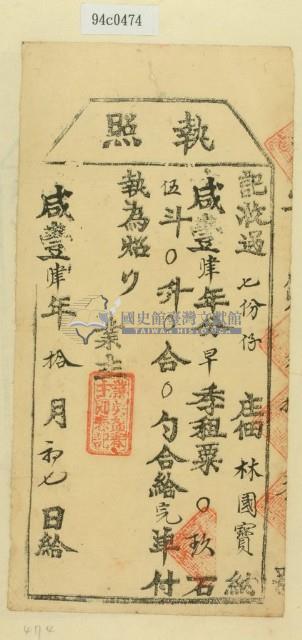 94c0474
執照
記收過七份仔庄佃林國寶納
咸豐肆年分早季租粟〇玖石
伍斗〇升〇合〇勺合給完單付
執為炤
業主
咸豐肆年拾月初七日給
國史館臺灣文獻館
TAIWAN HISTORICA
474